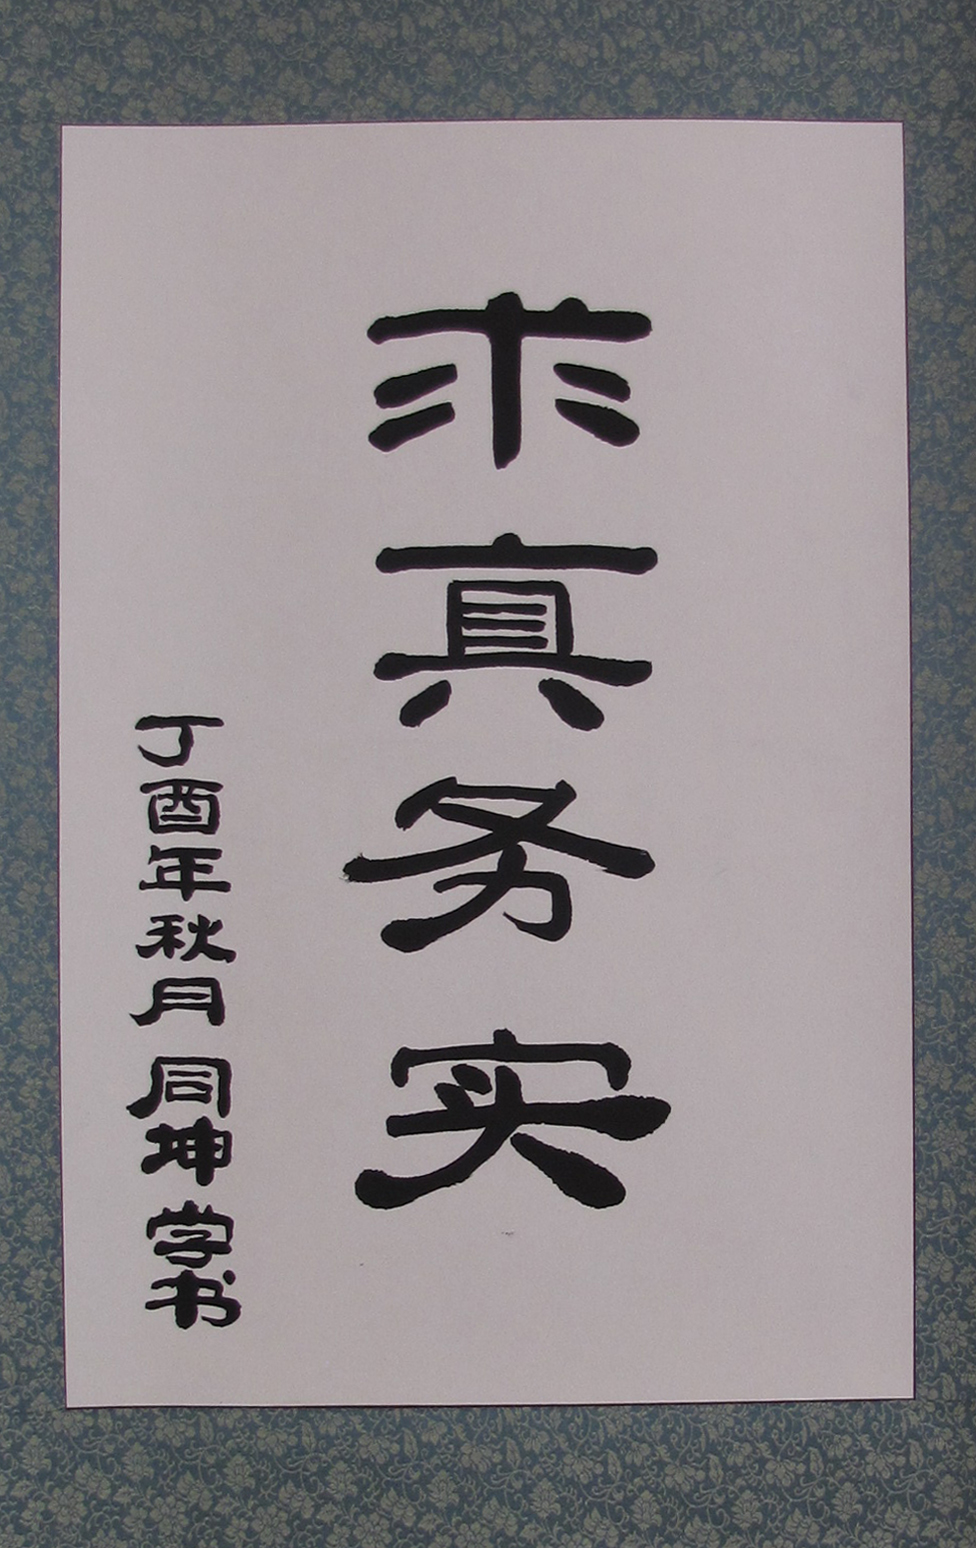 求真务实
丁酉年秋月同坤学书